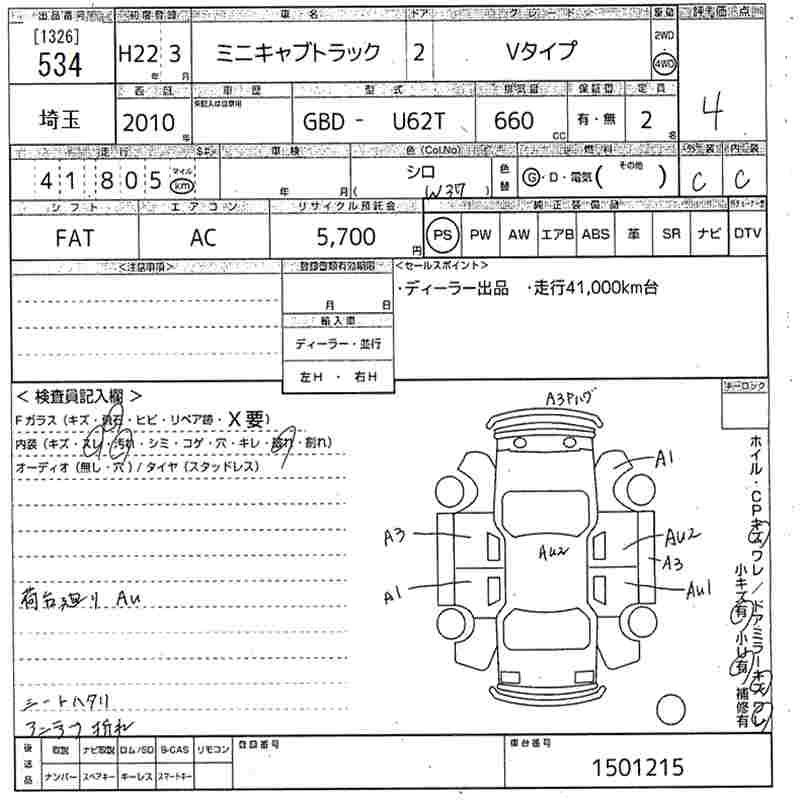 出品番号 初度登録 車名 ドア グレード 駆動 評価点
[1326]
534 H22 年 3 月 ミニキャブトラック 2 Vタイプ 2WD 4WD 4
埼玉 2010 年 車歴 型式 排気量 保証書 定員
GBD - U62T 660 CC 有・無 2 名
走行 車検 色(Col.No) 色替 燃料 外装 内装
41805 マイル km 年 月 シロ ( W37 ) G・D・電気( その他 ) C C
シフト エアコン リサイクル預託金 純正装備品
FAT AC 5,700 円 PS PW AW エアB ABS 革 SR ナビ DTV
<注意事項> 登録書類有効期限 <セールスポイント>
・ディーラー出品 ・走行41,000km台
月 日
輸入車
ディーラー・並行
左H ・ 右H
<検査員記入欄> キーロック
Fガラス(キズ・飛石・ヒビ・リペア跡・X要)
内装(キズ・スレ・汚れ・シミ・コゲ・穴・キレ・ 割れ)
オーディオ(無し・穴)/タイヤ(スタッドレス)
A3
A1
A3 Au2 Au2
A3
A1 Au1
荷台廻り Au
シートハタリ
アンテナ折れ
ホイル・CPキズワレ/ドアミラーキズワレ
小キズ有 小凹有 補修有
後送品 取説 ナビ取説 ロム/SD B-CAS リモコン 登録番号 車台番号
ナンバー スペアキー キーレス スマートキー 1501215